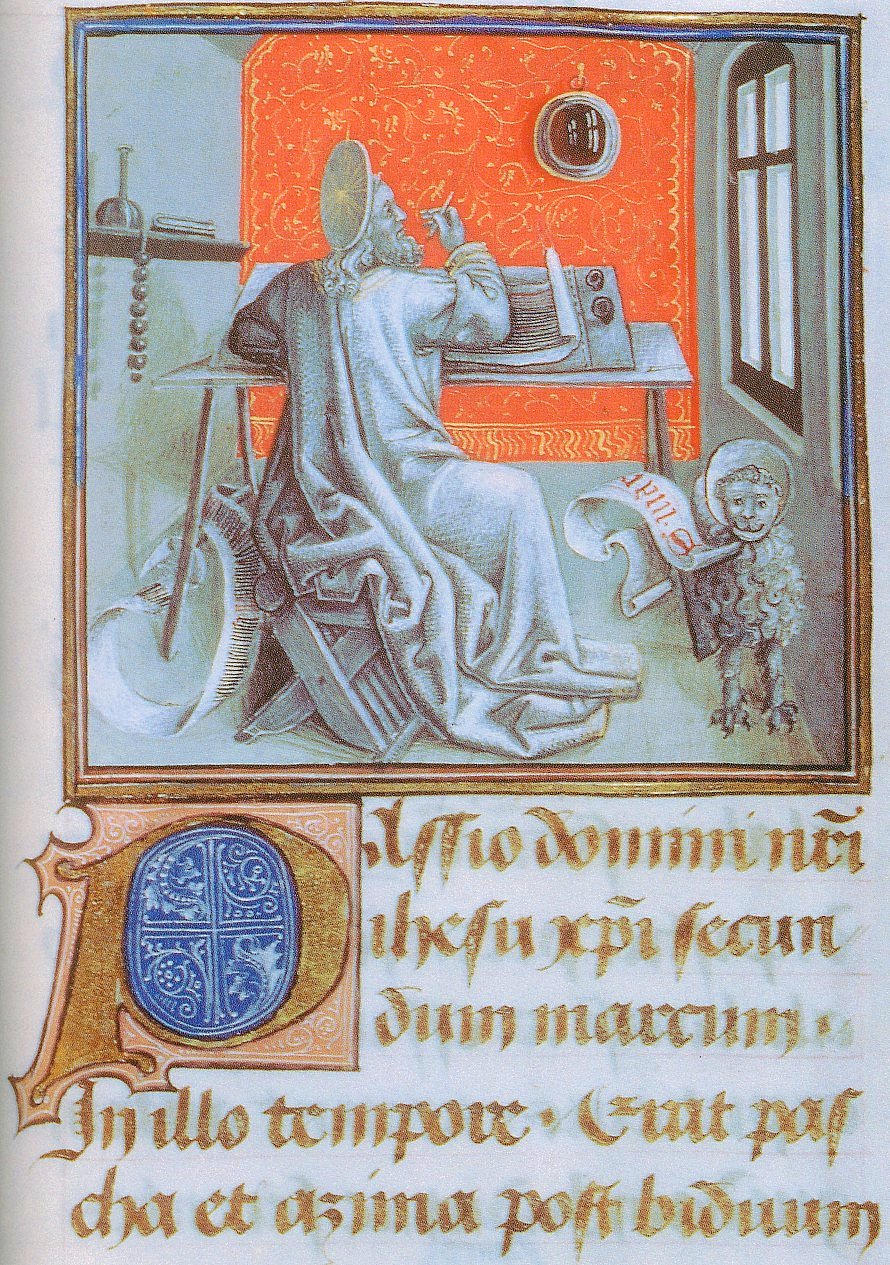 S. mar
Passio domini nr̃i
ihesu xp̃i secun
dum marcum.
In illo tempore. Erat pas
cha et azima post biduum